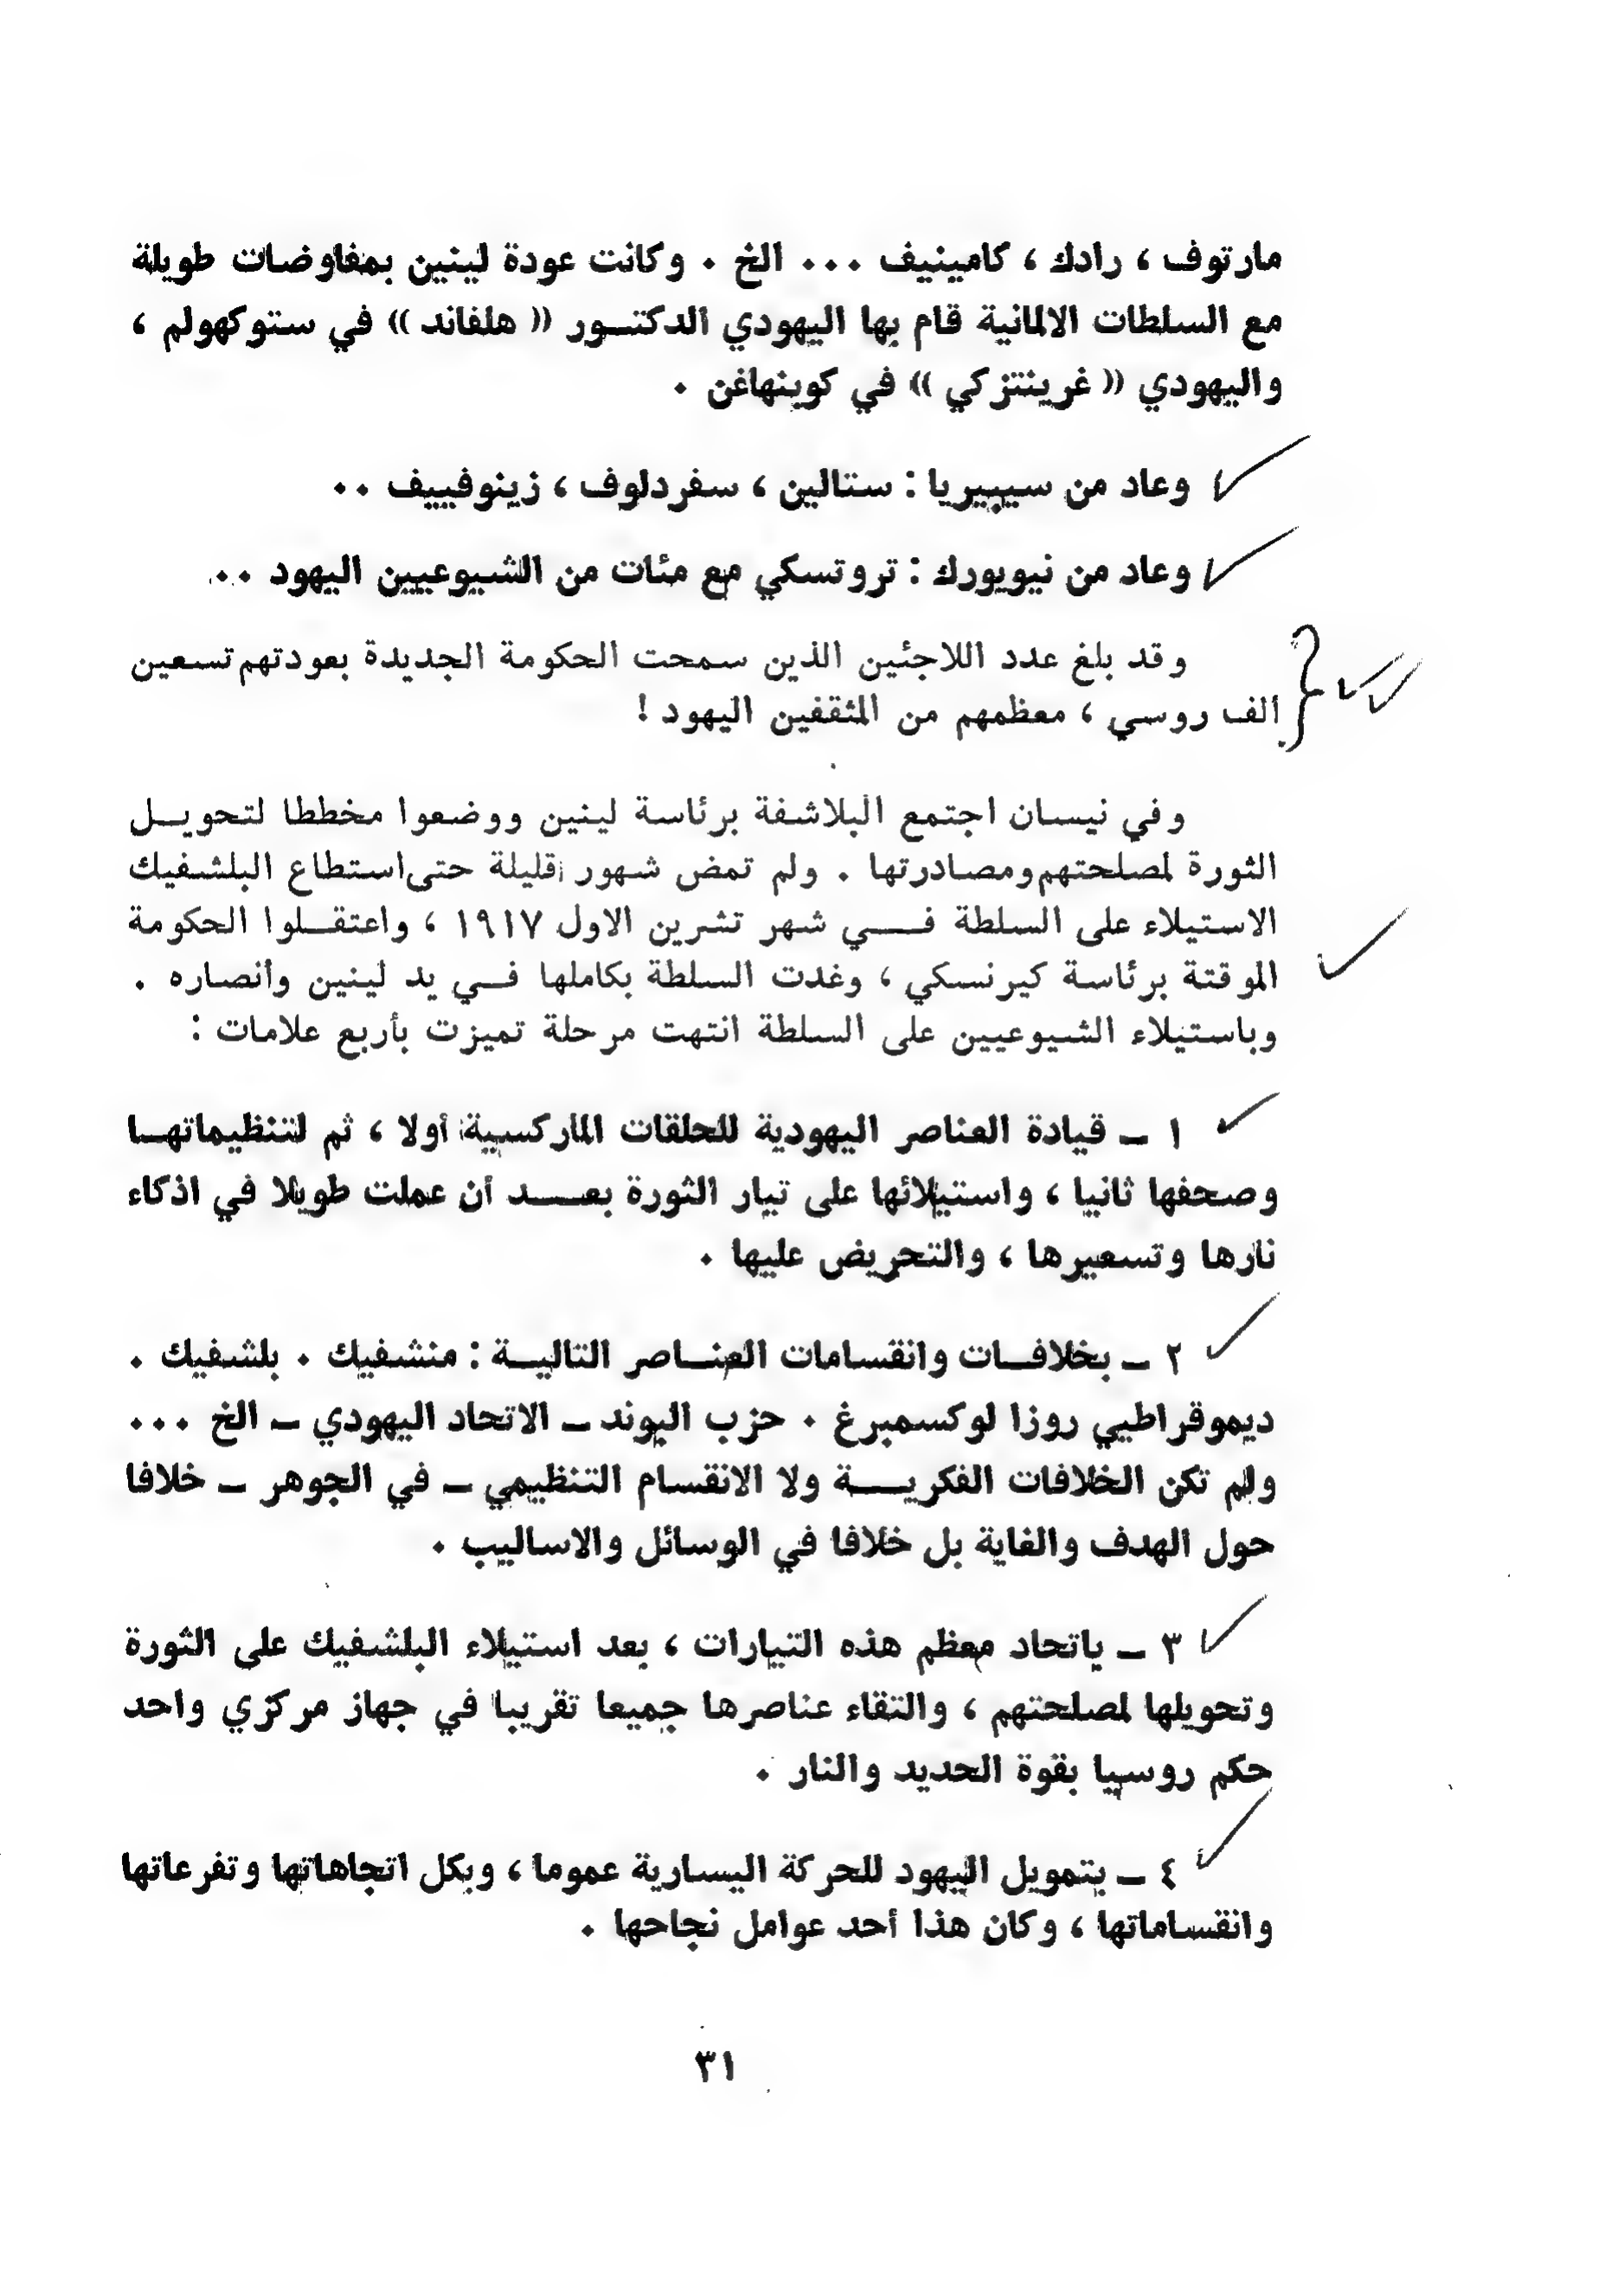 مارتوف ، رادك ، كامينيف ... الخ . وكانت عودة لينين بمفاوضات طويلة
مع السلطات الالمانية قام بها اليهودي الدكتـور « هلفاند » في ستوكهولم ،
واليهودي « غرينتزكي » في كوبنهاغن .
وعاد من سيبيريا : ستالين ، سفردلوف ، زينوفييف ..
وعاد من نيويورك : تروتسكي مع مئات من الشيوعيين اليهود ..
وقد بلغ عدد اللاجئين الذين سمحت الحكومة الجديدة بعودتهم تسعين
الف روسي ، معظمهم من المثقفين اليهود !
وفي نيسان اجتمع البلاشفة برئاسة لينين ووضعوا مخططا لتحويـل
الثورة لمصلحتهم ومصادرتها . ولم تمض شهور قليلة حتى استطاع البلشفيك
الاستيلاء على السلطة فـــي شهر تشرين الاول ١٩١٧ ، واعتقـلوا الحكومة
الموقتة برئاسة كيرنسكي ، وغدت السلطة بكاملها فـي يد لينين وأنصاره .
وباستيلاء الشيوعيين على السلطة انتهت مرحلة تميزت بأربع علامات :
١ ـ قيادة العناصر اليهودية للحلقات الماركسية أولا ، ثم لتنظيماتهـا
وصحفها ثانيا ، واستيلائها على تيار الثورة بعـــد أن عملت طويلا في اذكاء
نارها وتسعيرها ، والتحريض عليها .
٢ ـ بخلافـات وانقسامات العنـاصر التاليـة : منشفيك . بلشفيك .
ديموقراطيي روزا لوكسمبرغ . حزب البوند ـ الاتحاد اليهودي ـ الخ ...
ولم تكن الخلافات الفكريـــة ولا الانقسام التنظيمي ـ في الجوهر ـ خلافا
حول الهدف والغاية بل خلافا في الوسائل والاساليب .
٣ ـ باتحاد معظم هذه التيارات ، بعد استيلاء البلشفيك على الثورة
وتحويلها لمصلحتهم ، والتقاء عناصرها جميعا تقريبا في جهاز مركزي واحد
حكم روسيا بقوة الحديد والنار .
٤ ـ بتمويل اليهود للحركة اليسارية عموما ، وبكل اتجاهاتها وتفرعاتها
وانقساماتها ، وكان هذا أحد عوامل نجاحها .
٣١